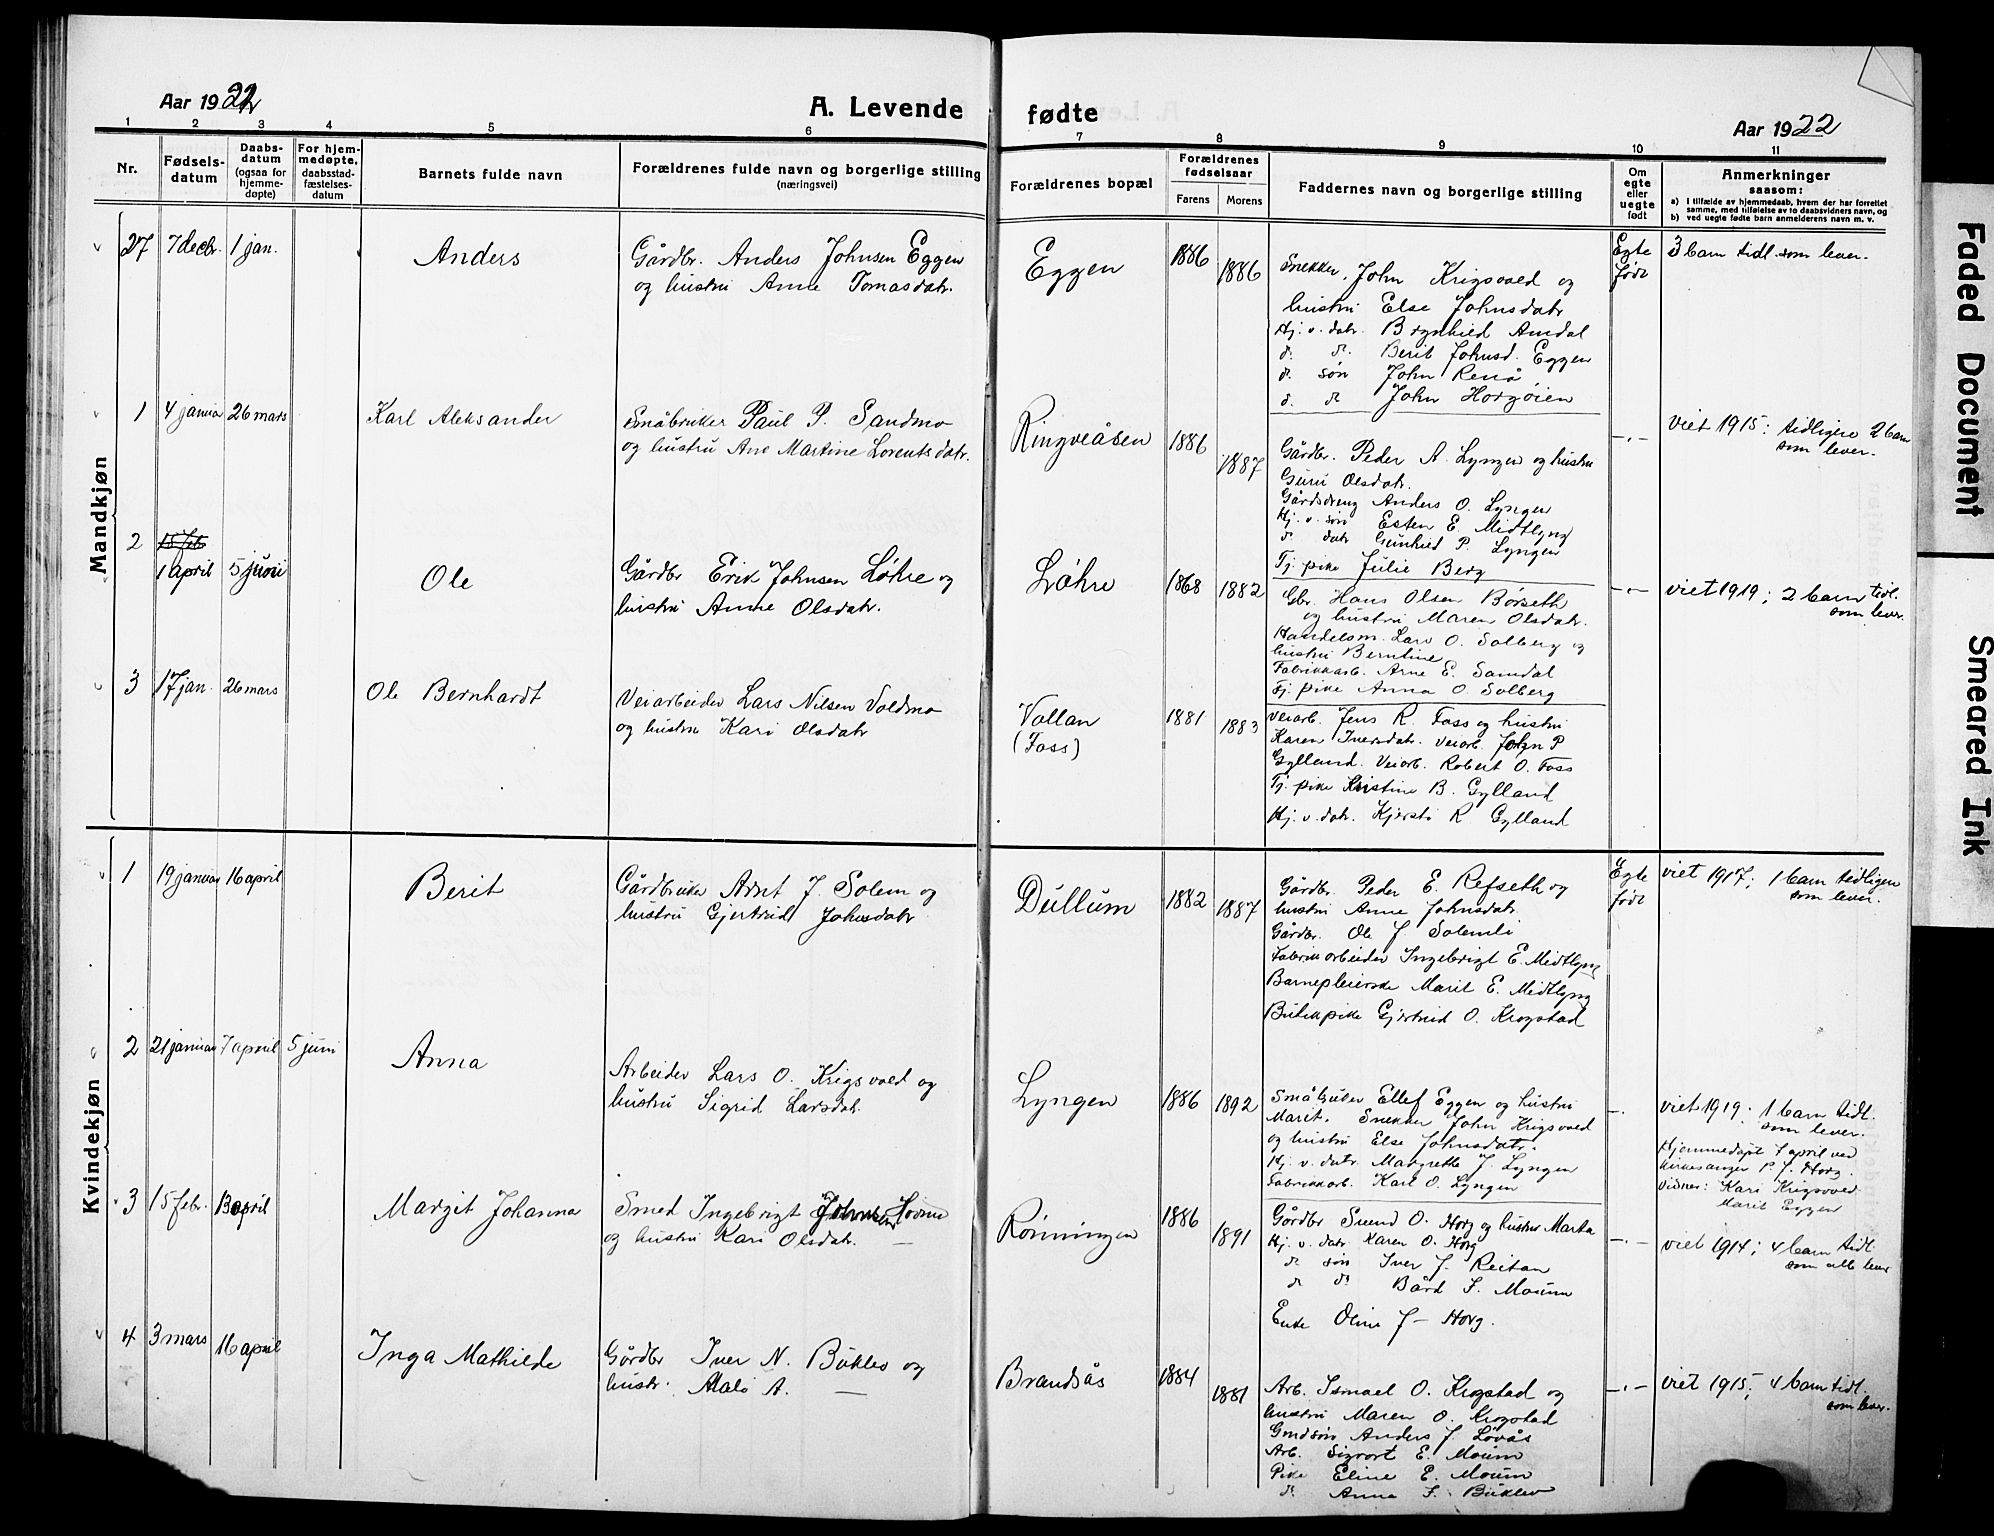 Aar 1922
A. Levende fødte
Aar 1922
1 2 3 4 5 6 7 8 9 10 11
Nr.
Fødsels-
datum
Daabs-
datum
(ogsaa for
hjemme-
døpte)
For hjem-
medøpte,
daabsstad-
fæstelses-
datum
Barnets fulde navn
Forældrenes fulde navn og borgerlige stilling
(næringsvei)
Forældrenes bopæl
Forældrenes
fødselsaar
Farens Morens
Faddernes navn og borgerlige stilling
Om
egte
eller
uegte
født
Anmerkninger
saasom:
a) I tilfælde av hjemmedaab, hvem der har forrettet
samme, med tilføielse av to daabsvidners navn, og
b) ved uegte fødte barn anmelderens navn m. v.
Mandkjøn
27 7 decbr. 1 jan.
Anders
Gårdbr. Anders Johnsen Eggen
og hustru Anne Tomasdatr.
Eggen
1886 1886
Snekker John Krigsvold og
hustru Else Johnsdatr
Hj. v. datr. Brynhild Amdal
d. d. Berit Johnsd. Eggen
d. søn John Renå
d. d John Horgøien
Egte
født
3 barn tidl. som lever.
1 4 januar 26 mars
Karl Aleksander
Småbruker Paul P. Sandmo
og hustru Ane Martine Lorentsdatr.
Ringveåsen
1886 1887
Gårdbr. Peder A. Lyngen og hustru
Guru Olsdatr.
Gårdsdreng Anders O. Lyngen
Hj. v. søn Esten E. Midtlyng
d. datr Gunhild P. Lyngen
Tj. pike Julie Berg
-"-
viet 1915; tidligere 2 barn
som lever.
2 15 feb
1 april 5 juni
Ole
Gårdbr Erik Johnsen Løhre og
hustru Anne Olsdatr.
Løhre
1868 1882
Gbr. Hans Olsen Børseth
og hustru Maren Olsdatr.
Handelsm. Lars O. Solberg og
hustru Berntine
Fabrikkarb. Arne E. Samdal
Tj. pike Anna O. Solberg
-"-
viet 1919; 2 barn tidl.
som lever.
3 17 jan. 26 mars
Ole Bernhardt
Veiarbeider Lars Nilsen Voldmo
og hustru Kari Olsdatr
Vollan
(Foss)
1881 1883
Veiarb. Jens R. Foss og hustru
Karen Iversdatr. Veiarb. John P
Gylland. Veiarb. Robert O. Foss
Tj. pike Kristine B. Gylland
Hj. v. datr. Kjersti R. Gylland
Kvindekjøn
1 19 januar 16 april
Berit
Gårdbruker Arnt J. Solem og
hustru Gjertrud Johnsdatr
Dullum
1882 1887
Gårdbr. Peder E. Refseth og
hustru Anne Johnsdatr
Gårdbr. Ole J Solemli
Fabrikarbeider Ingebrigt E. Midtlyng
Barnepleierske Marit E. Midtlyng
Butikpike Gjertrud O. Krogstad
Egte
født
viet 1917; 1 barn tidligere
som lever.
2 21 januar 7 april 5 juni
Anna
Arbeider Lars O. Krigsvold og
hustru Sigrid Larsdatr.
Lyngen
1886 1892
Småbruker Ellef Eggen og hustru
Marit. Snekker John Krigsvold
og hustru Else Johnsdatr.
Hj. v. datr. Margrethe J. Lyngen
Fabrikkarb. Karl O. Lyngen
-"-
viet 1919; 1 barn tidl.
som lever.
Hjemmedøpt 7 april ved
kirkesanger P. J. Horg.
Vidner: Kari Krigsvold
Marit Eggen
3 15 febr. 13 april
Margit Johanna
Smed Ingebrigt Johnsen
og hustru Kari Olsdatr.
Rønningen
1886 1891
Gårdbr Svend O. Horg og hustru Marta
Hj. v. datr Karen O. Horg
d. søn Iver J. Reitan
d. d. Bård S. Mourn
Enke Oline J - Horg.
-"-
viet 1914; 4 barn tidl.
som alle lever
4 3 mars 16 april
Inga Mathilde
Gårdbr Iver N. Buklev og
hustr. Malo A.
Brandsås
1884 1881
Arb. Ismael O. Krogstad og
hustru Maren O. Krogstad
Gmdsøn Anders J. Løvås
Arb. Sigvort E. Moum
Pike Eline E. Moum
d. Anna I. Buklev
-"-
viet 1915; 4 barn tidl.
som lever.
Faded Document
Smeared Ink